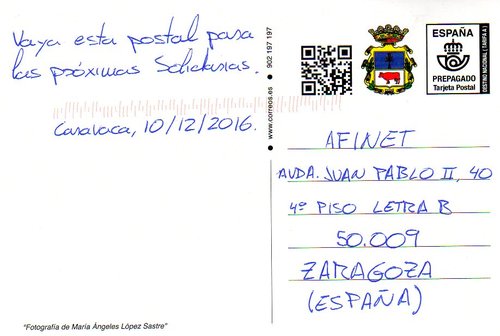 Vaya esta postal para
las próximas Solidarias.
Caravaca, 10/12/2016.
"Fotografía de María Ángeles López Sastre"
www.correos.es
902 197 197
ESPAÑA
PREPAGADO
Tarjeta Postal
DESTINO NACIONAL (TARIFA A)
AFINET
AVDA. JUAN PABLO II, 40
4º PISO LETRA B
50.009
ZARAGOZA
(ESPAÑA)